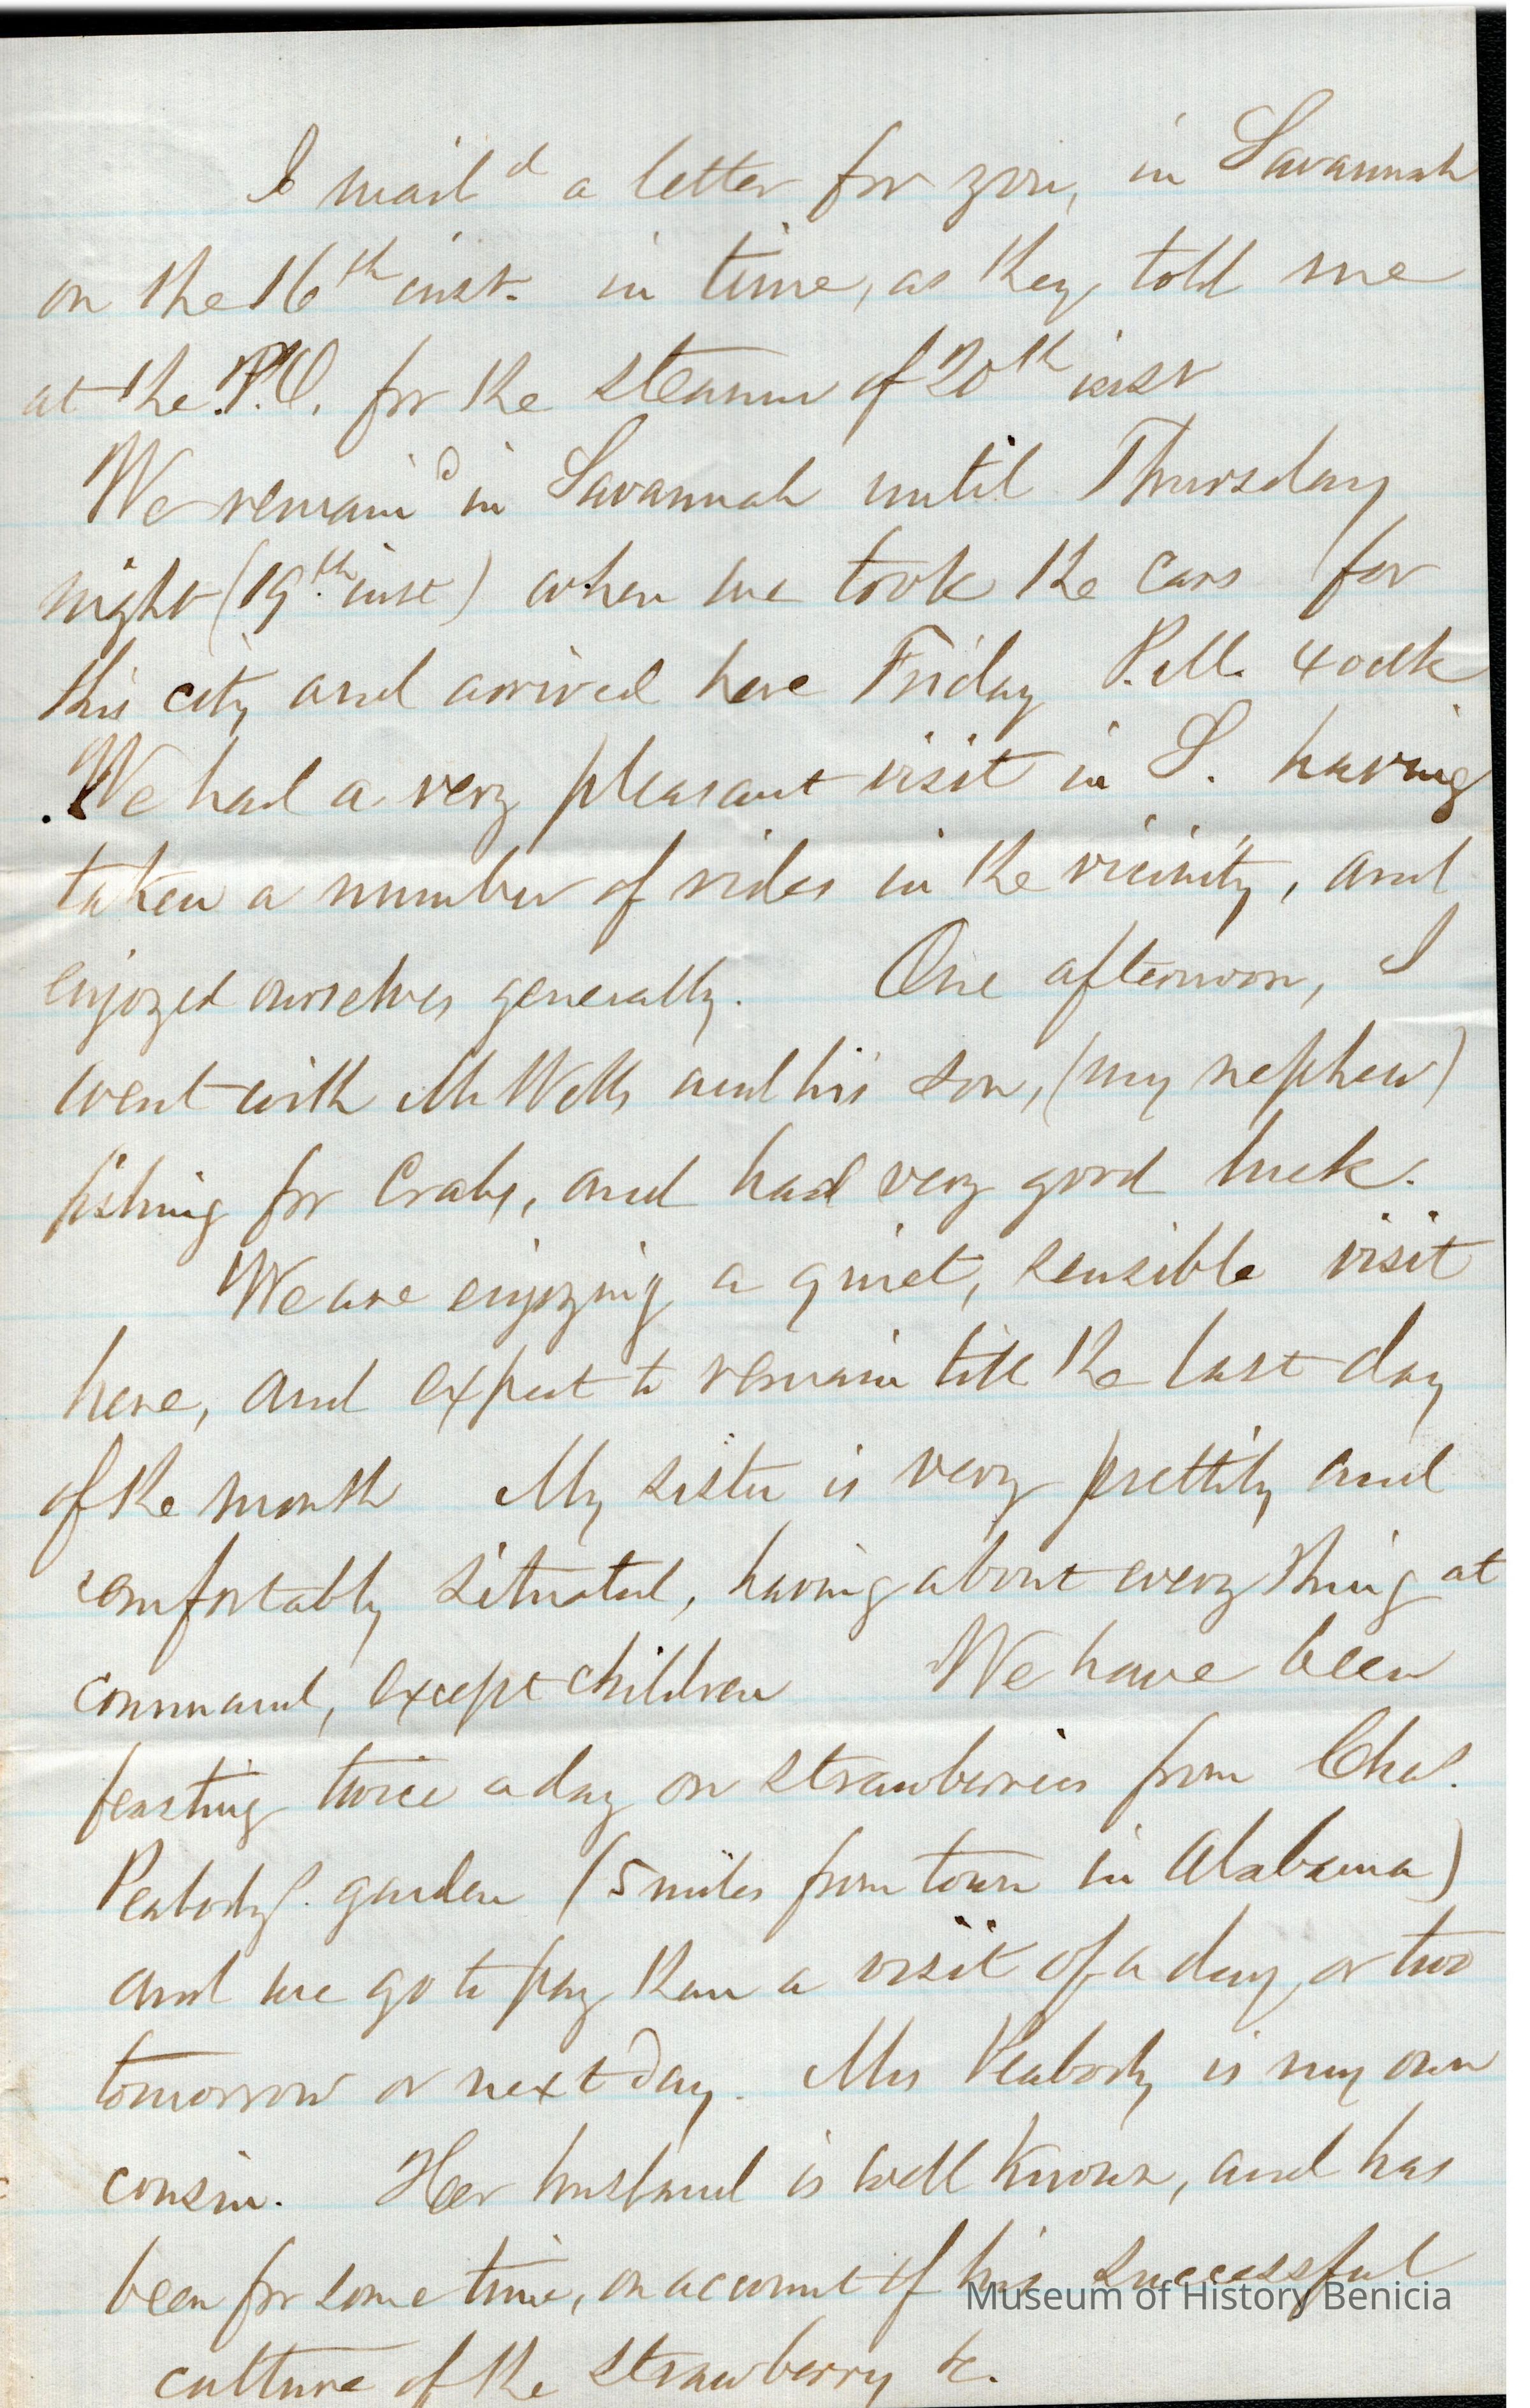 I mail'd a letter for you, in Savannah
on the 16th inst. in time, as they told me
at the P.O. for the steamer of 20th inst
We remain'd in Savannah until Thursday
night (19th inst) when we took the cars for
this city and arrived here Friday P.M. 4 oclk
We had a very pleasant visit in S. having
taken a number of rides in the vicinity, and
enjoyed ourselves generally. One afternoon, I
went with Mr Wells and his son, (my nephew)
fishing for Crabs, and had very good luck.
We are enjoying a quiet, sensible visit
here, and expect to remain till the last day
of the month My sister is very prettily and
comfortably situated, having about every thing at
command, except children We have been
feasting twice a day on strawberries from Chas.
Peabodys. garden (5 miles from town in Alabama)
and we go to pay them a visit of a day or two
tomorrow or next day. Mrs Peabody is my own
cousin. Her husband is well known, and has
been for some time, on account of his successful
culture of the strawberry &c.
Museum of History Benicia